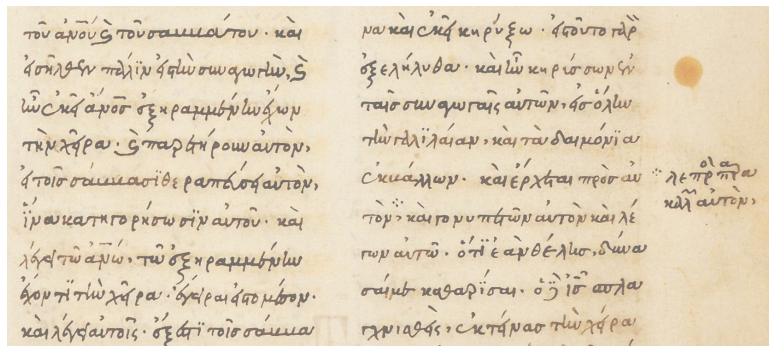 τοῦ ἀνοῦ κ τοῦ σαββάτου · καὶ
εἰσῆλθεν πάλϊν εἰς τὴν συναγωγὴν, κ
ἦν ἐκεῖ ἄνος ἐξηραμμένην ἔχων
τὴν χεῖρα · κ παρετήρουν αὐτὸν,
εἰ τοῖς σάββασϊ θεραπεύσει αὐτὸν,
ἵνα κατηγορήσωσϊν αὐτοῦ · καὶ
λέγει τῶ ἀνω, τῶ ἐξηραμμένην
ἔχοντϊ τὴν χεῖρα · ἔγειραι εἰς το μέσον ·
καὶ λέγει αὐτοῖς · ἔξεστϊ τοῖς σάββα
να καὶ ἐκεῖ κηρύξω · εἰς τοῦτο γὰρ
ἐξελήλυθα · καὶ ἦν κηρίσσων ἐν
ταῖς συναγωγαῖς αὐτῶν, εἰς ὅλην
τὴν γαλϊλαίαν, καὶ τὰ δαιμόνϊα
ἐκβάλλων · καὶ ἔρχεται πρὸς αὐ
τὸν, καὶ γονυπετῶν αὐτὸν καὶ λέ
γων αὐτῶ · ὅτϊ ἐὰν θέλης, δύνα
σαί με καθαρΐσαι · ὁ δὲ ἰς σπλα
γχνισθεὶς, ἐκτείνας τὴν χεῖρα
λεπρὸς παρα
καλῶν αὐτὸν,